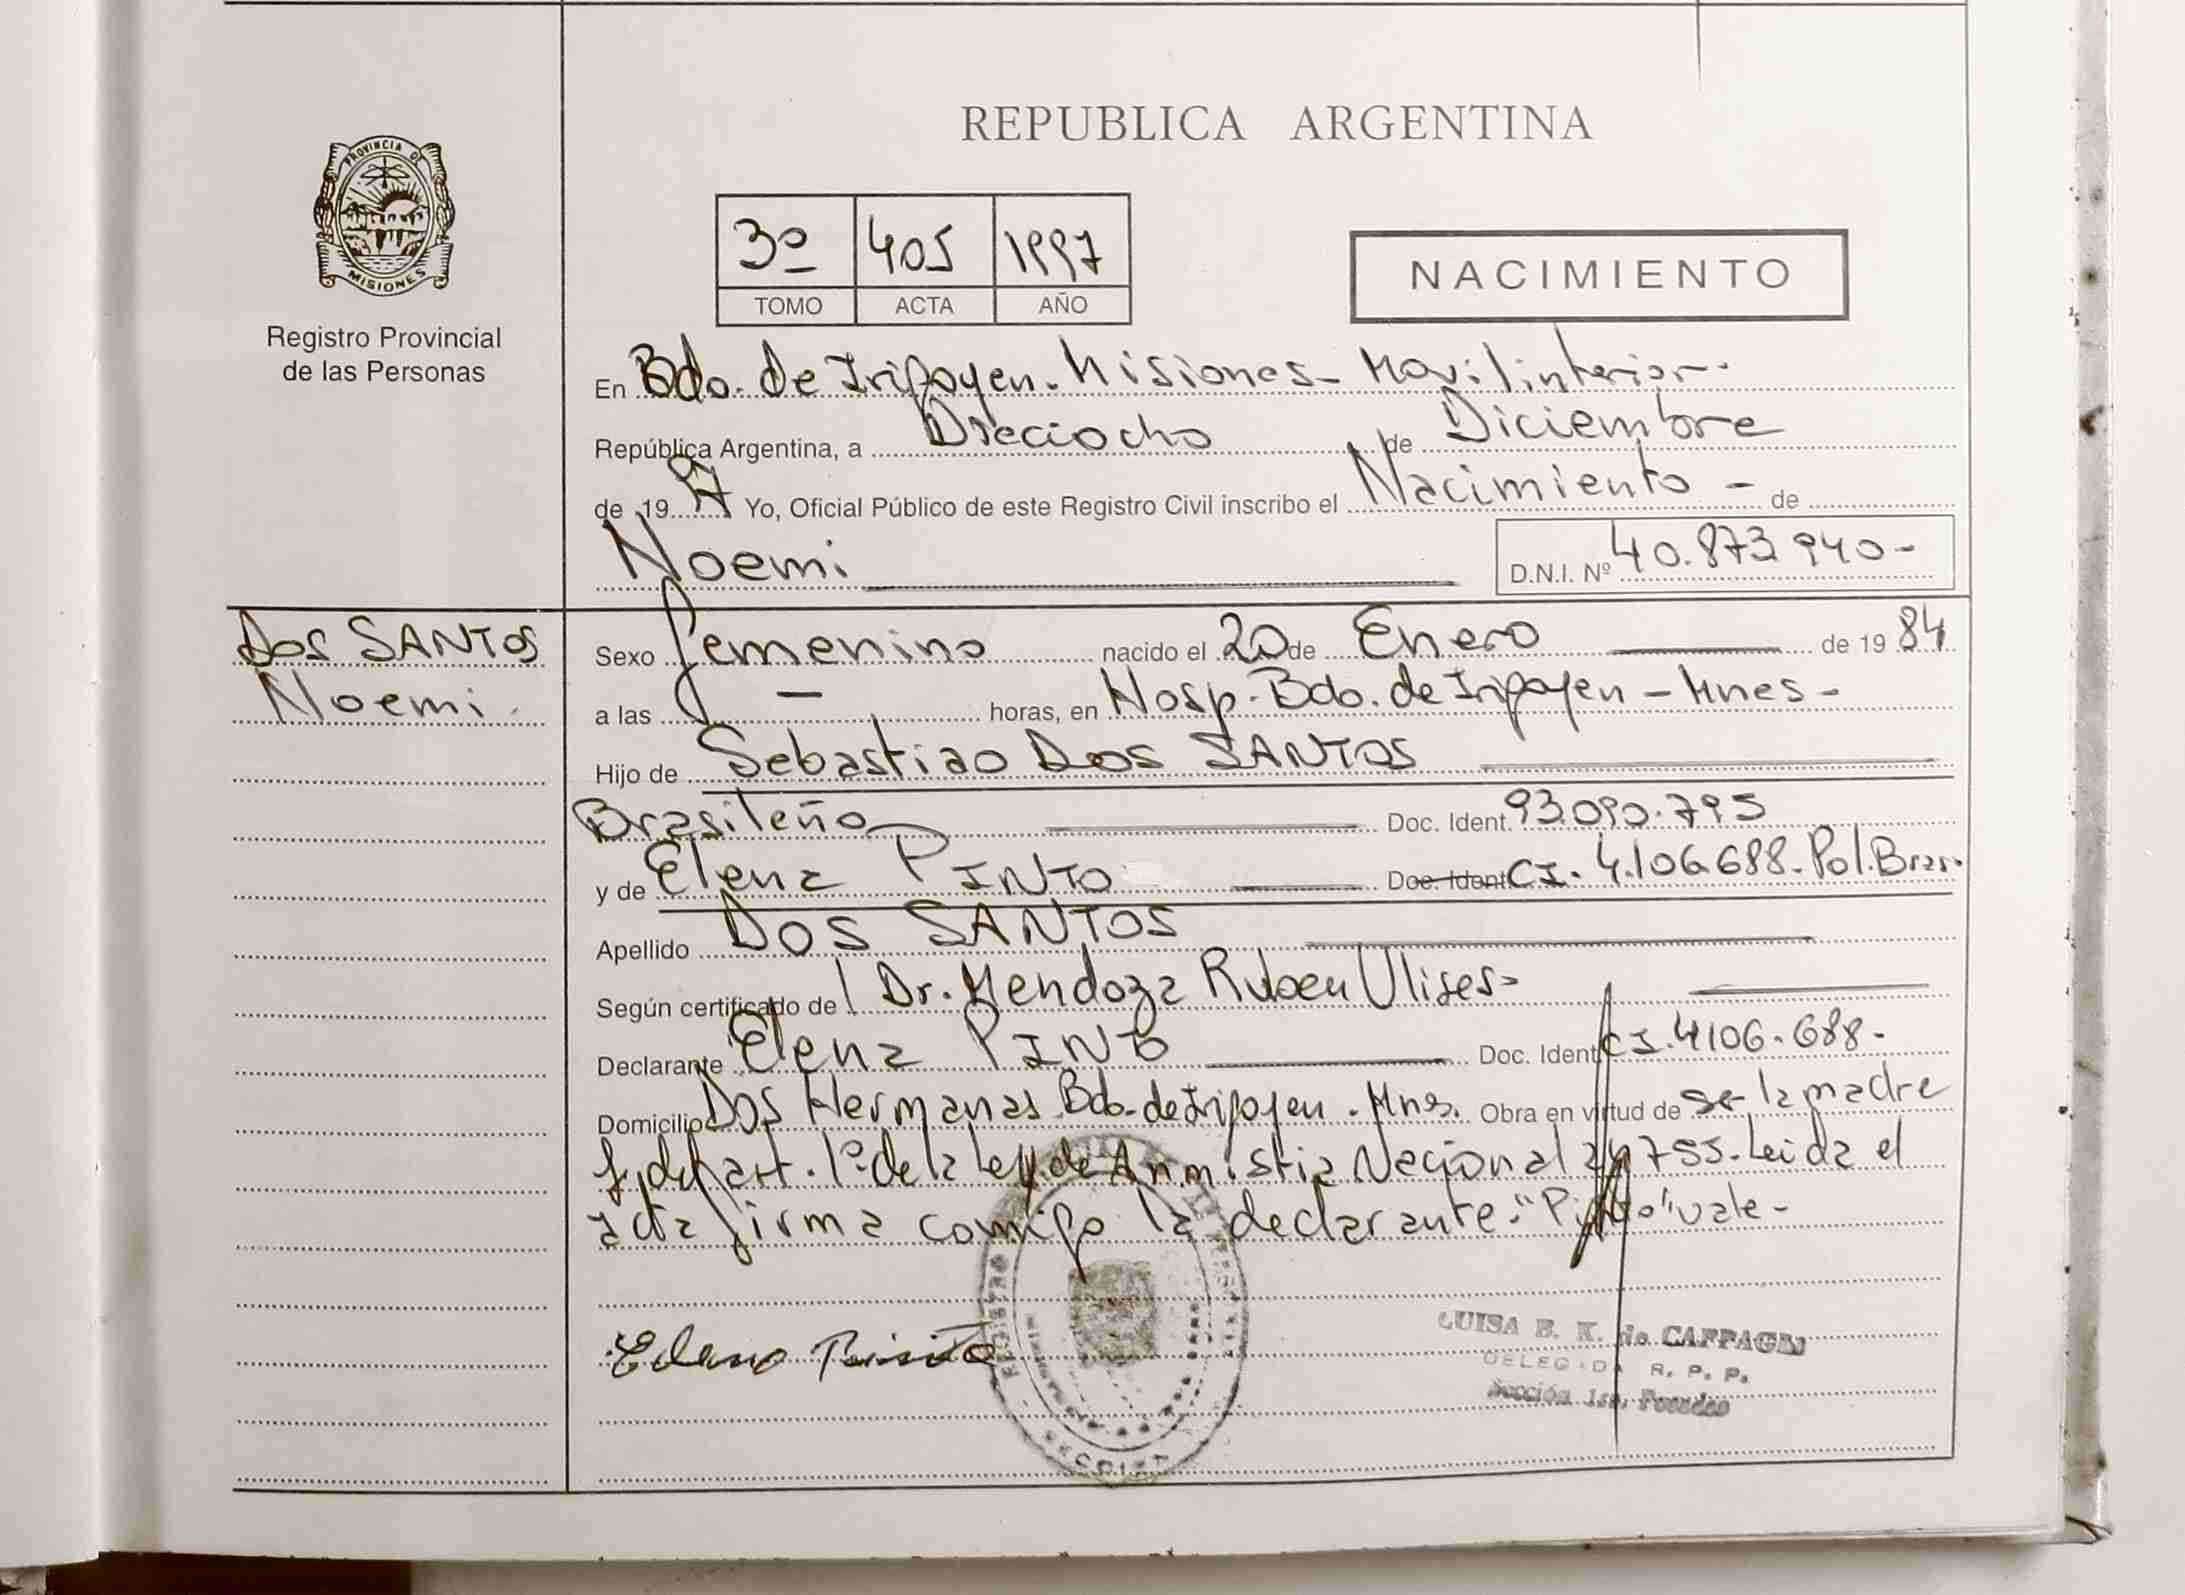 REPUBLICA ARGENTINA
PROVINCIA DE
MISIONES
Registro Provincial
de las Personas
3º 405 1997
TOMO ACTA AÑO
NACIMIENTO
En Bdo. de Irigoyen. Misiones - Movil interior.
República Argentina, a Dieciocho de Diciembre
de 1997 Yo, Oficial Público de este Registro Civil inscribo el Nacimiento - de
Noemi D.N.I. Nº 40.873.940-
Dos SANTOS
Noemi.
Sexo femenino nacido el 20 de Enero de 1984
a las - horas, en Hosp. Bdo. de Irigoyen - Mnes -
Hijo de Sebastiao Dos SANTOS
Brasileño Doc. Ident. 93.090.795
y de Elena PINTO Doc. Ident CI. 4.106.688. Pol. Bras.
Apellido DOS SANTOS
Según certificado de Dr. Mendoza Ruben Ulises-
Declarante Elena PINTO Doc. Ident CI. 4106.688-
Domicilio Dos Hermanas Bdo. de Irigoyen. Mnes. Obra en virtud de ser la madre
y del art. 1º de la Ley de Anmistia Nacional 24755. Leida el
acta firma conmigo la declarante. "Pinto" vale -
Elena Pinto
LUISA B. K. de CAFFAGNI
DELEGADA R. P. P.
Sección 1ra. Posadas